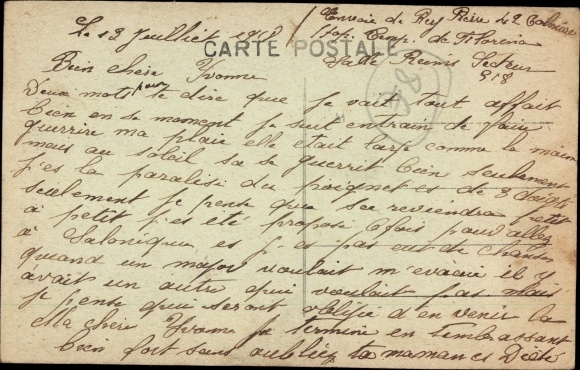 Le 13 Juillet 1918
Envoie de Rey Pierre 42 Coloniale
Hop. Temp. de Florina
CARTE POSTALE
Salle Reims Secteur
518
Bien chère Yvonne
Deux mots pour te dire que je vait tout affait
bien en se moment je suit entrain de faire
guerrire ma plaie elle était large comme la main
mais au soleil sa se guerrit bien seulement
j'es la paralisi du poignet es de 3 doigts
seulement je pense que sa reviendra petit
à petit j'es été propose 6 fois pour aller
à Salonique es j'es pas eut de chance
quand un major voulait m'évacuée il y
avait un autre qui voulait pas mais
je pense qui seront obligée d'en venir la
Ma chère Yvonne je termine en t'embrassant
bien fort sans oubliez ta maman es Dédé